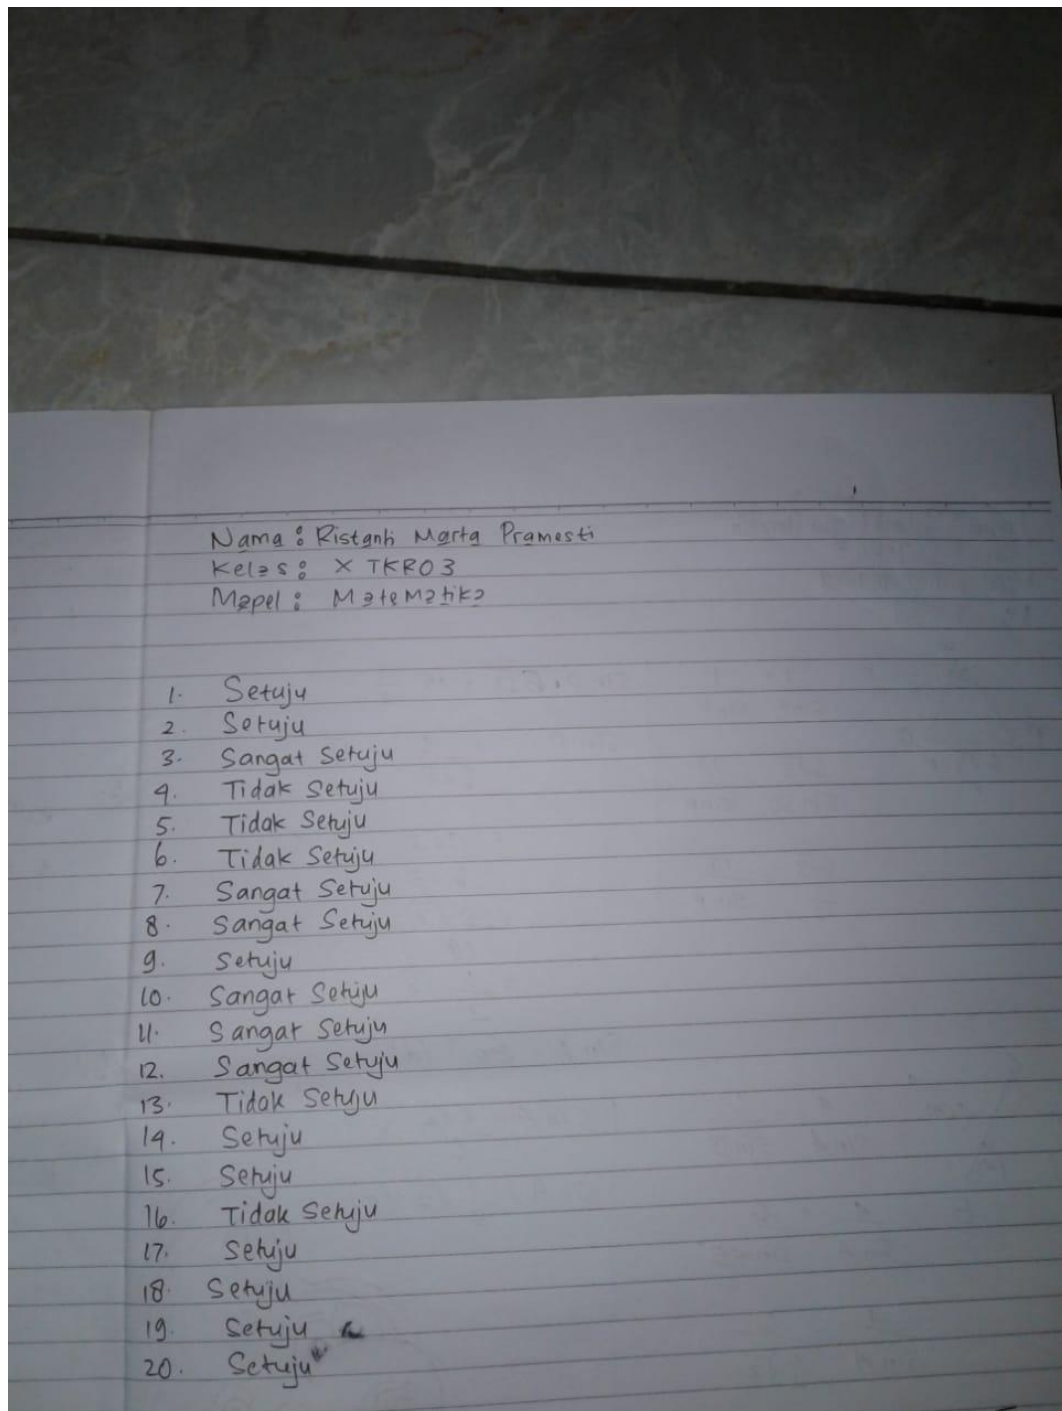 Nama : Ristanti Marta Pramesti
Kelas : X TKRO3
Mapel : Matematika
1. Setuju
2. Setuju
3. Sangat Setuju
4. Tidak Setuju
5. Tidak Setuju
6. Tidak Setuju
7. Sangat Setuju
8. Sangat Setuju
9. Setuju
10. Sangat Setuju
11. Sangat Setuju
12. Sangat Setuju
13. Tidak Setuju
14. Setuju
15. Setuju
16. Tidak Setuju
17. Setuju
18. Setuju
19. Setuju
20. Setuju